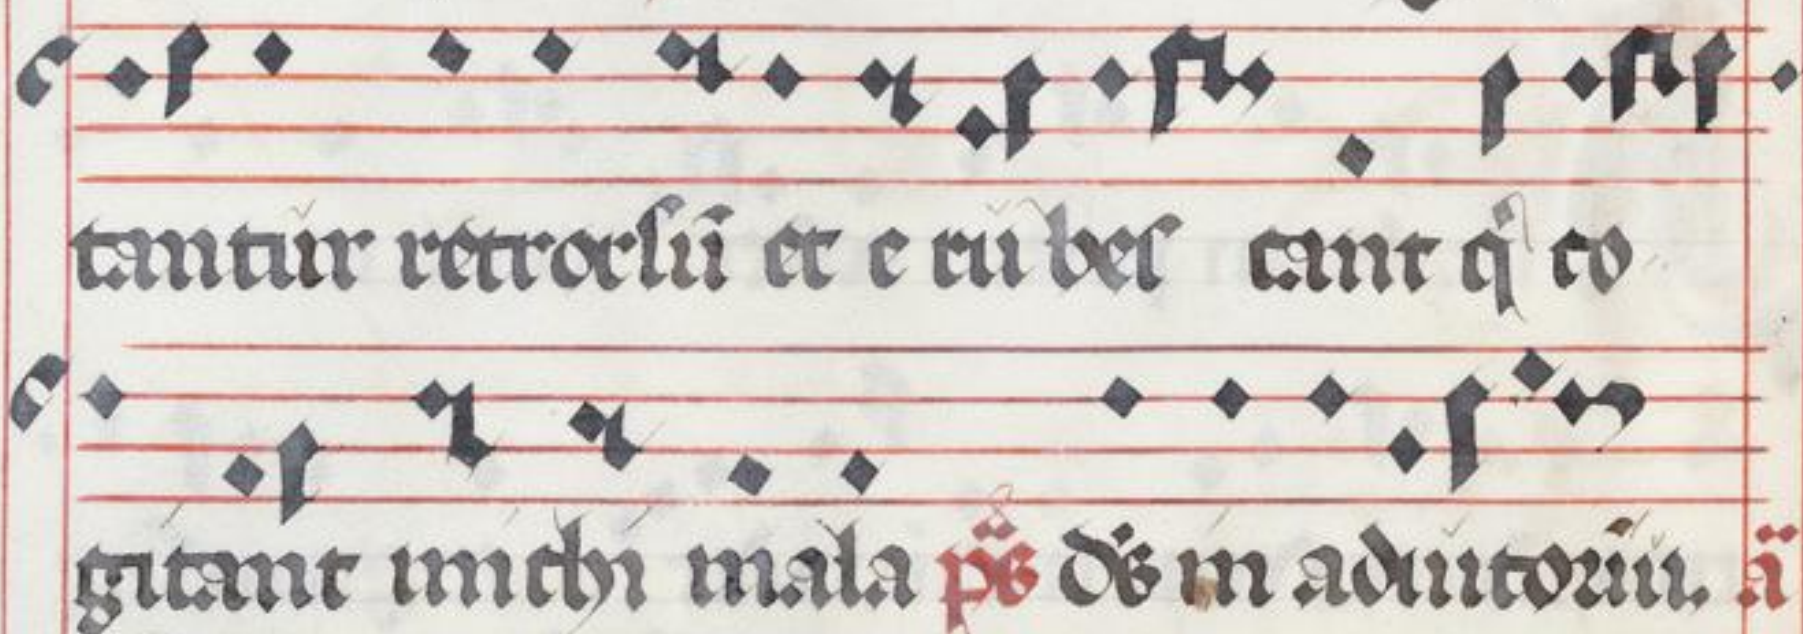 tantur retrorsū et e rubes cant q̄ co
gitant michi mala pš ds̄ in adiutoriū. ā